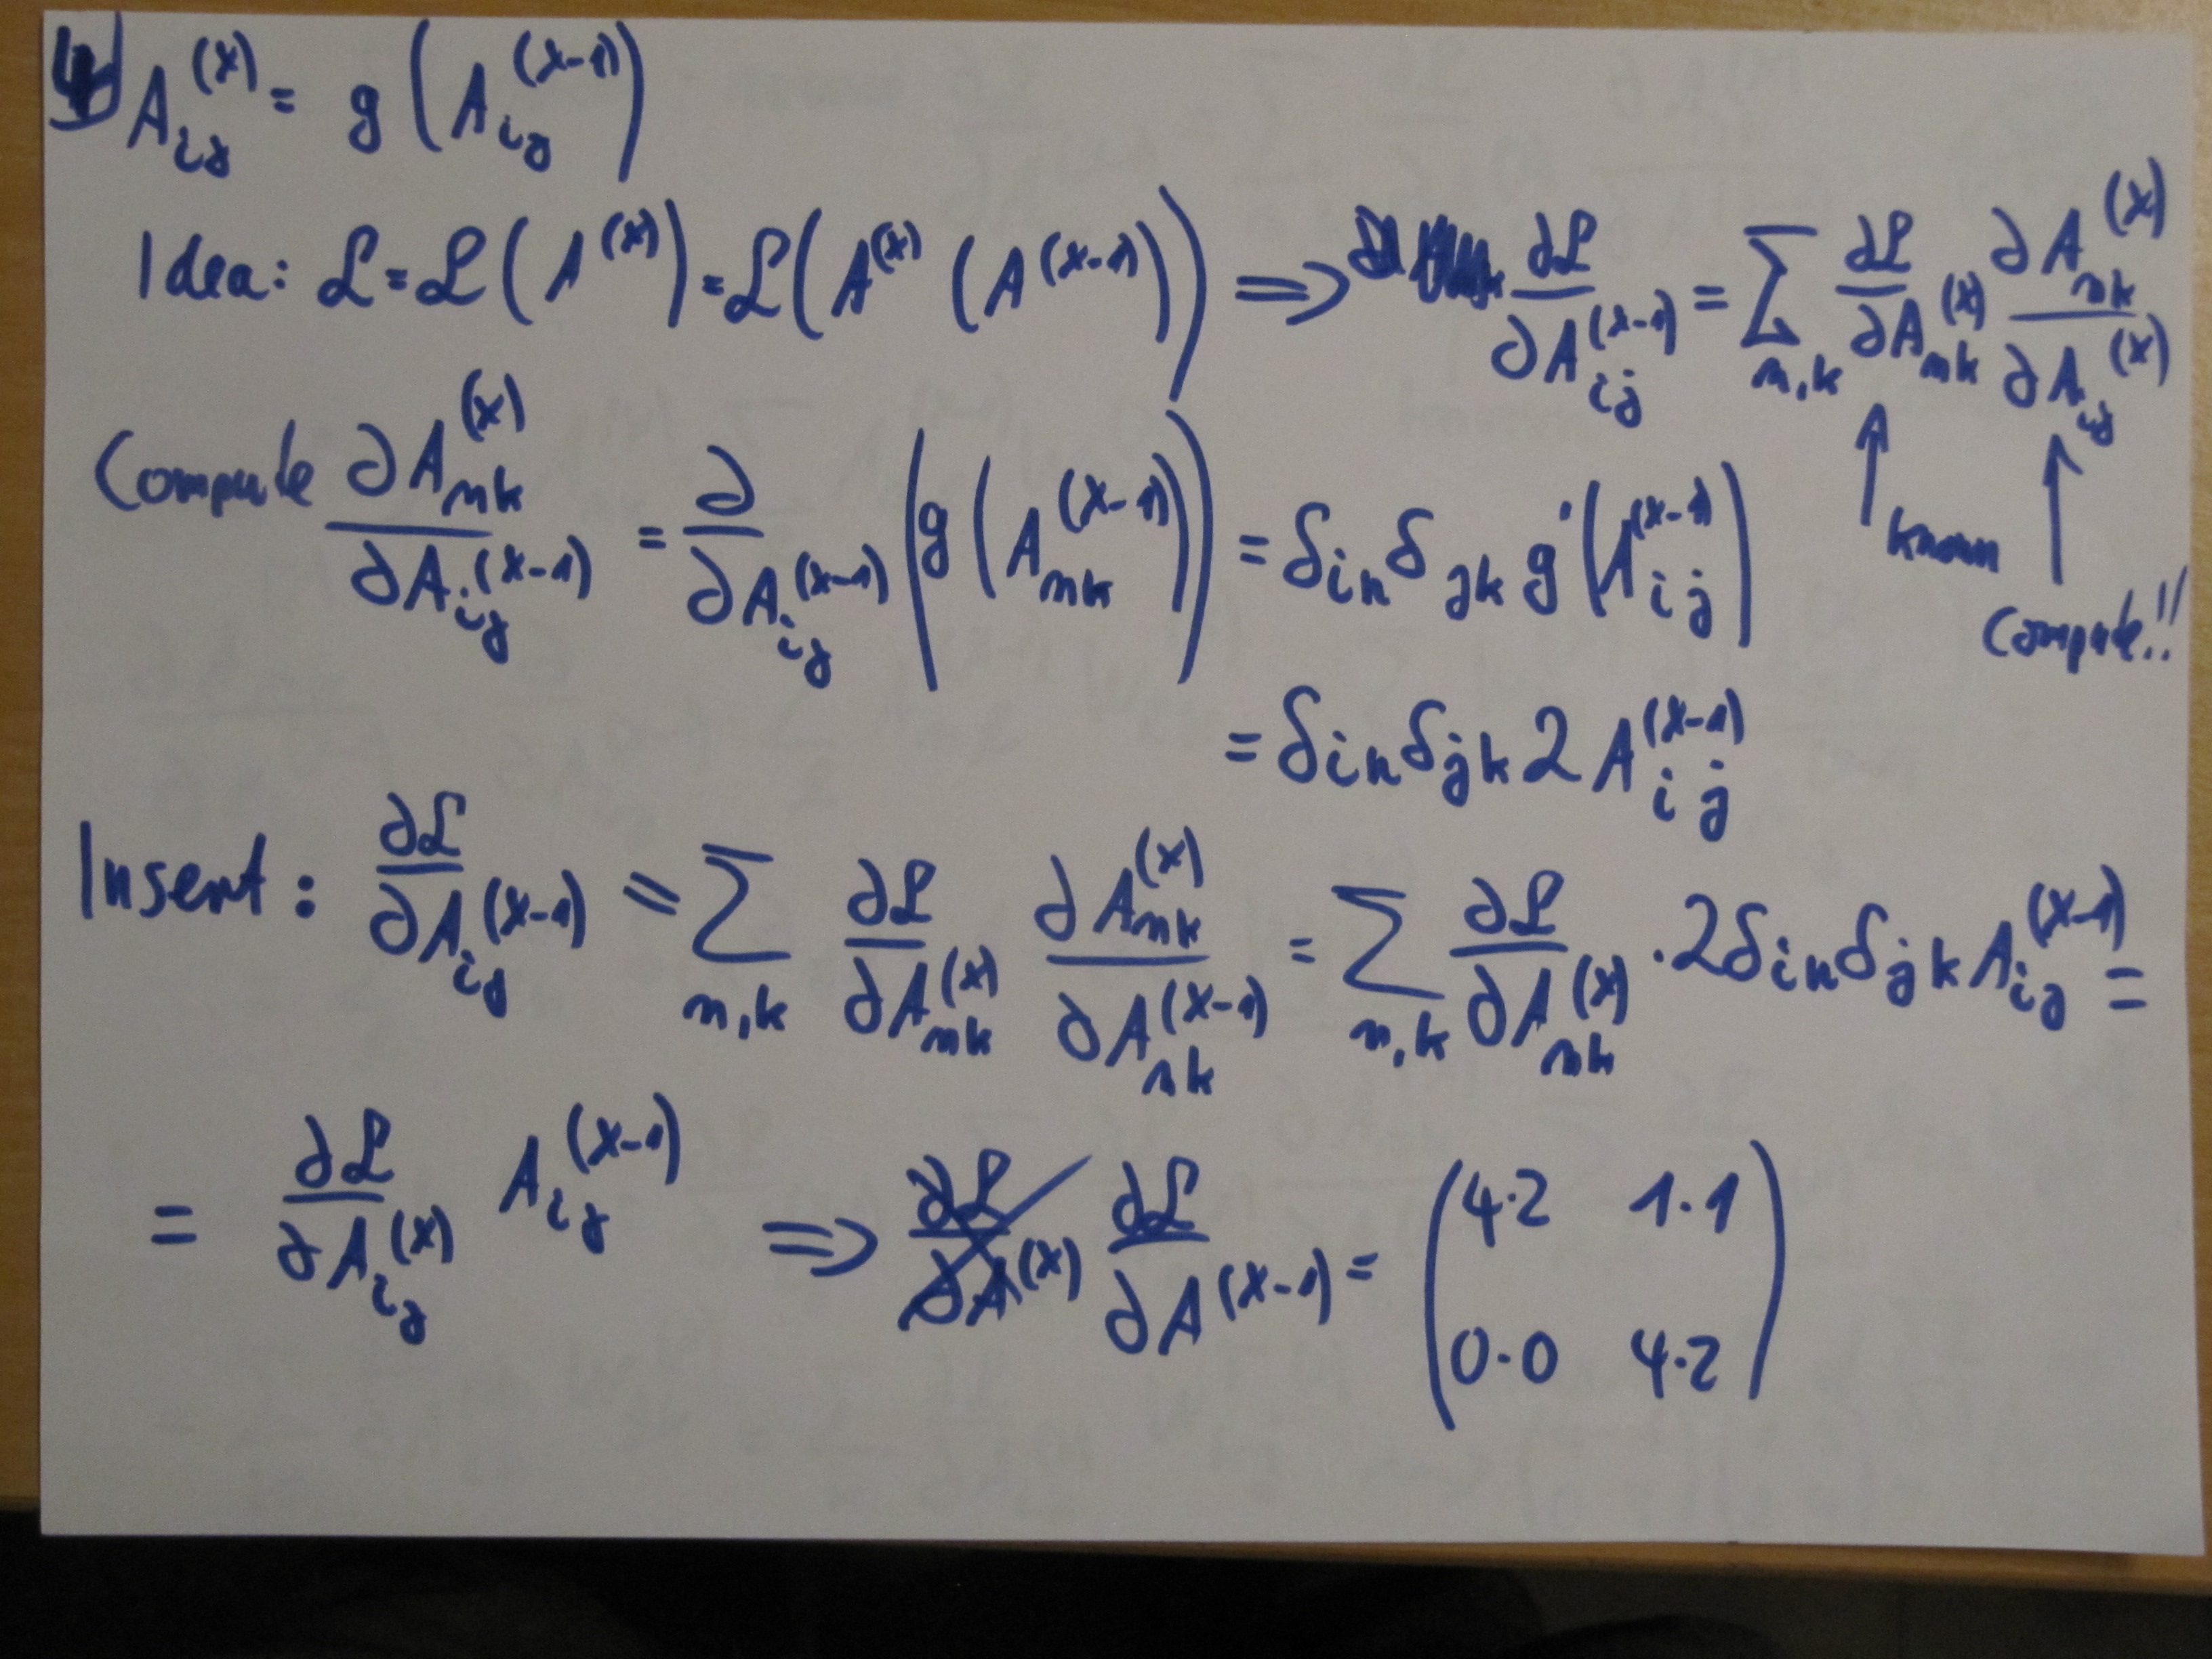 4) A_{ij}^{(x)} = g(A_{ij}^{(x-1)})
Idea: ℒ = ℒ(A^{(x)}) = ℒ(A^{(x)}(A^{(x-1)})) ⟹ ∂ℒ/∂A_{ij}^{(x-1)} = Σ_{n,k} ∂ℒ/∂A_{nk}^{(x)} ∂A_{nk}^{(x)}/∂A_{ij}^{(x)}
↑ known ↑ Compute!!
Compute ∂A_{nk}^{(x)}/∂A_{ij}^{(x-1)} = ∂/∂A_{ij}^{(x-1)} (g(A_{nk}^{(x-1)})) = δ_{in} δ_{jk} g'(A_{ij}^{(x-1)})
= δ_{in} δ_{jk} 2 A_{ij}^{(x-1)}
Insert: ∂ℒ/∂A_{ij}^{(x-1)} = Σ_{n,k} ∂ℒ/∂A_{nk}^{(x)} ∂A_{nk}^{(x)}/∂A_{nk}^{(x-1)} = Σ_{n,k} ∂ℒ/∂A_{nk}^{(x)} · 2 δ_{in} δ_{jk} A_{ij}^{(x-1)} =
= ∂ℒ/∂A_{ij}^{(x)} A_{ij}^{(x-1)} ⟹ ∂ℒ/∂A^{(x)} ∂ℒ/∂A^{(x-1)} = (4·2 1·1
0·0 4·2)